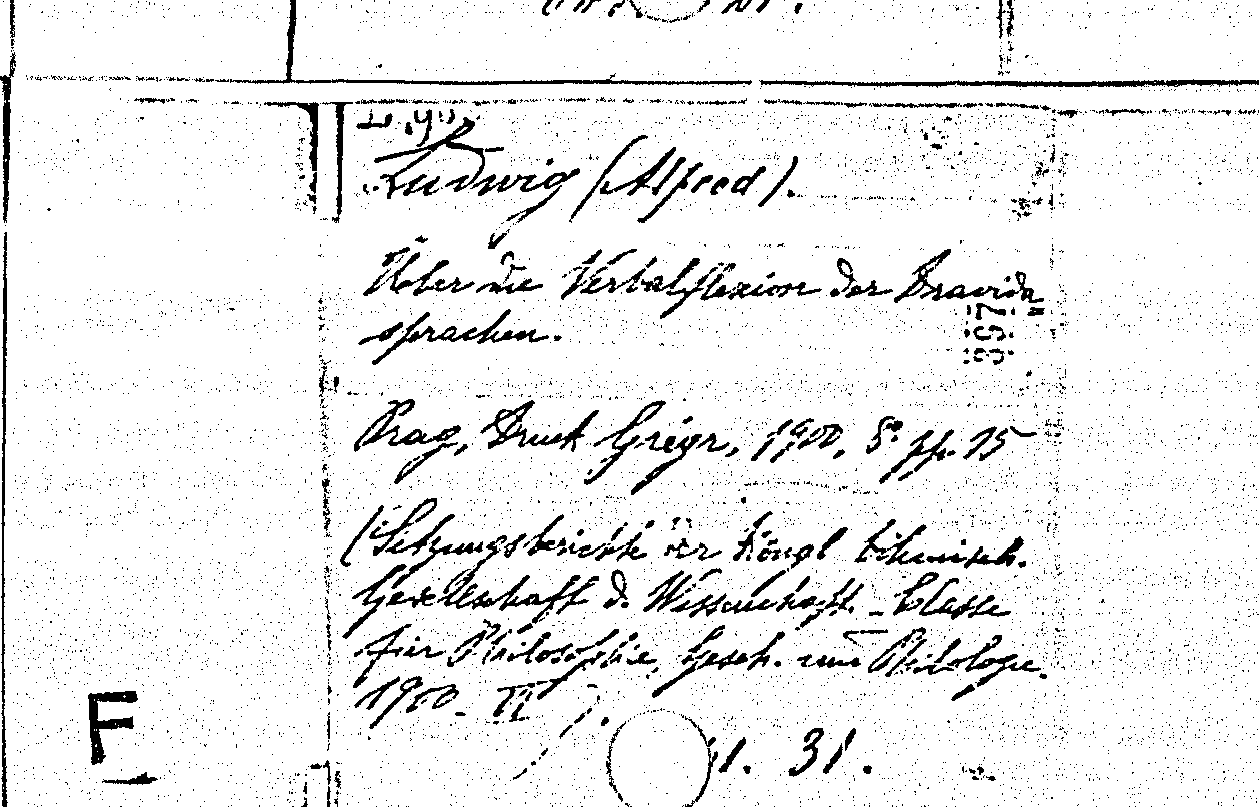 Ludwig (Alfred).
Über die Verbalflexion der Dravida
sprachen.
397
Prag, Druck Grégr, 1900, 8° pp. 15
(Sitzungsberichte der Köngl böhmisch.
Gesellschaft d. Wissenschaft. - Classe
für Philosophie, Gesch. und Philologie.
1900 - VI).
F
31.